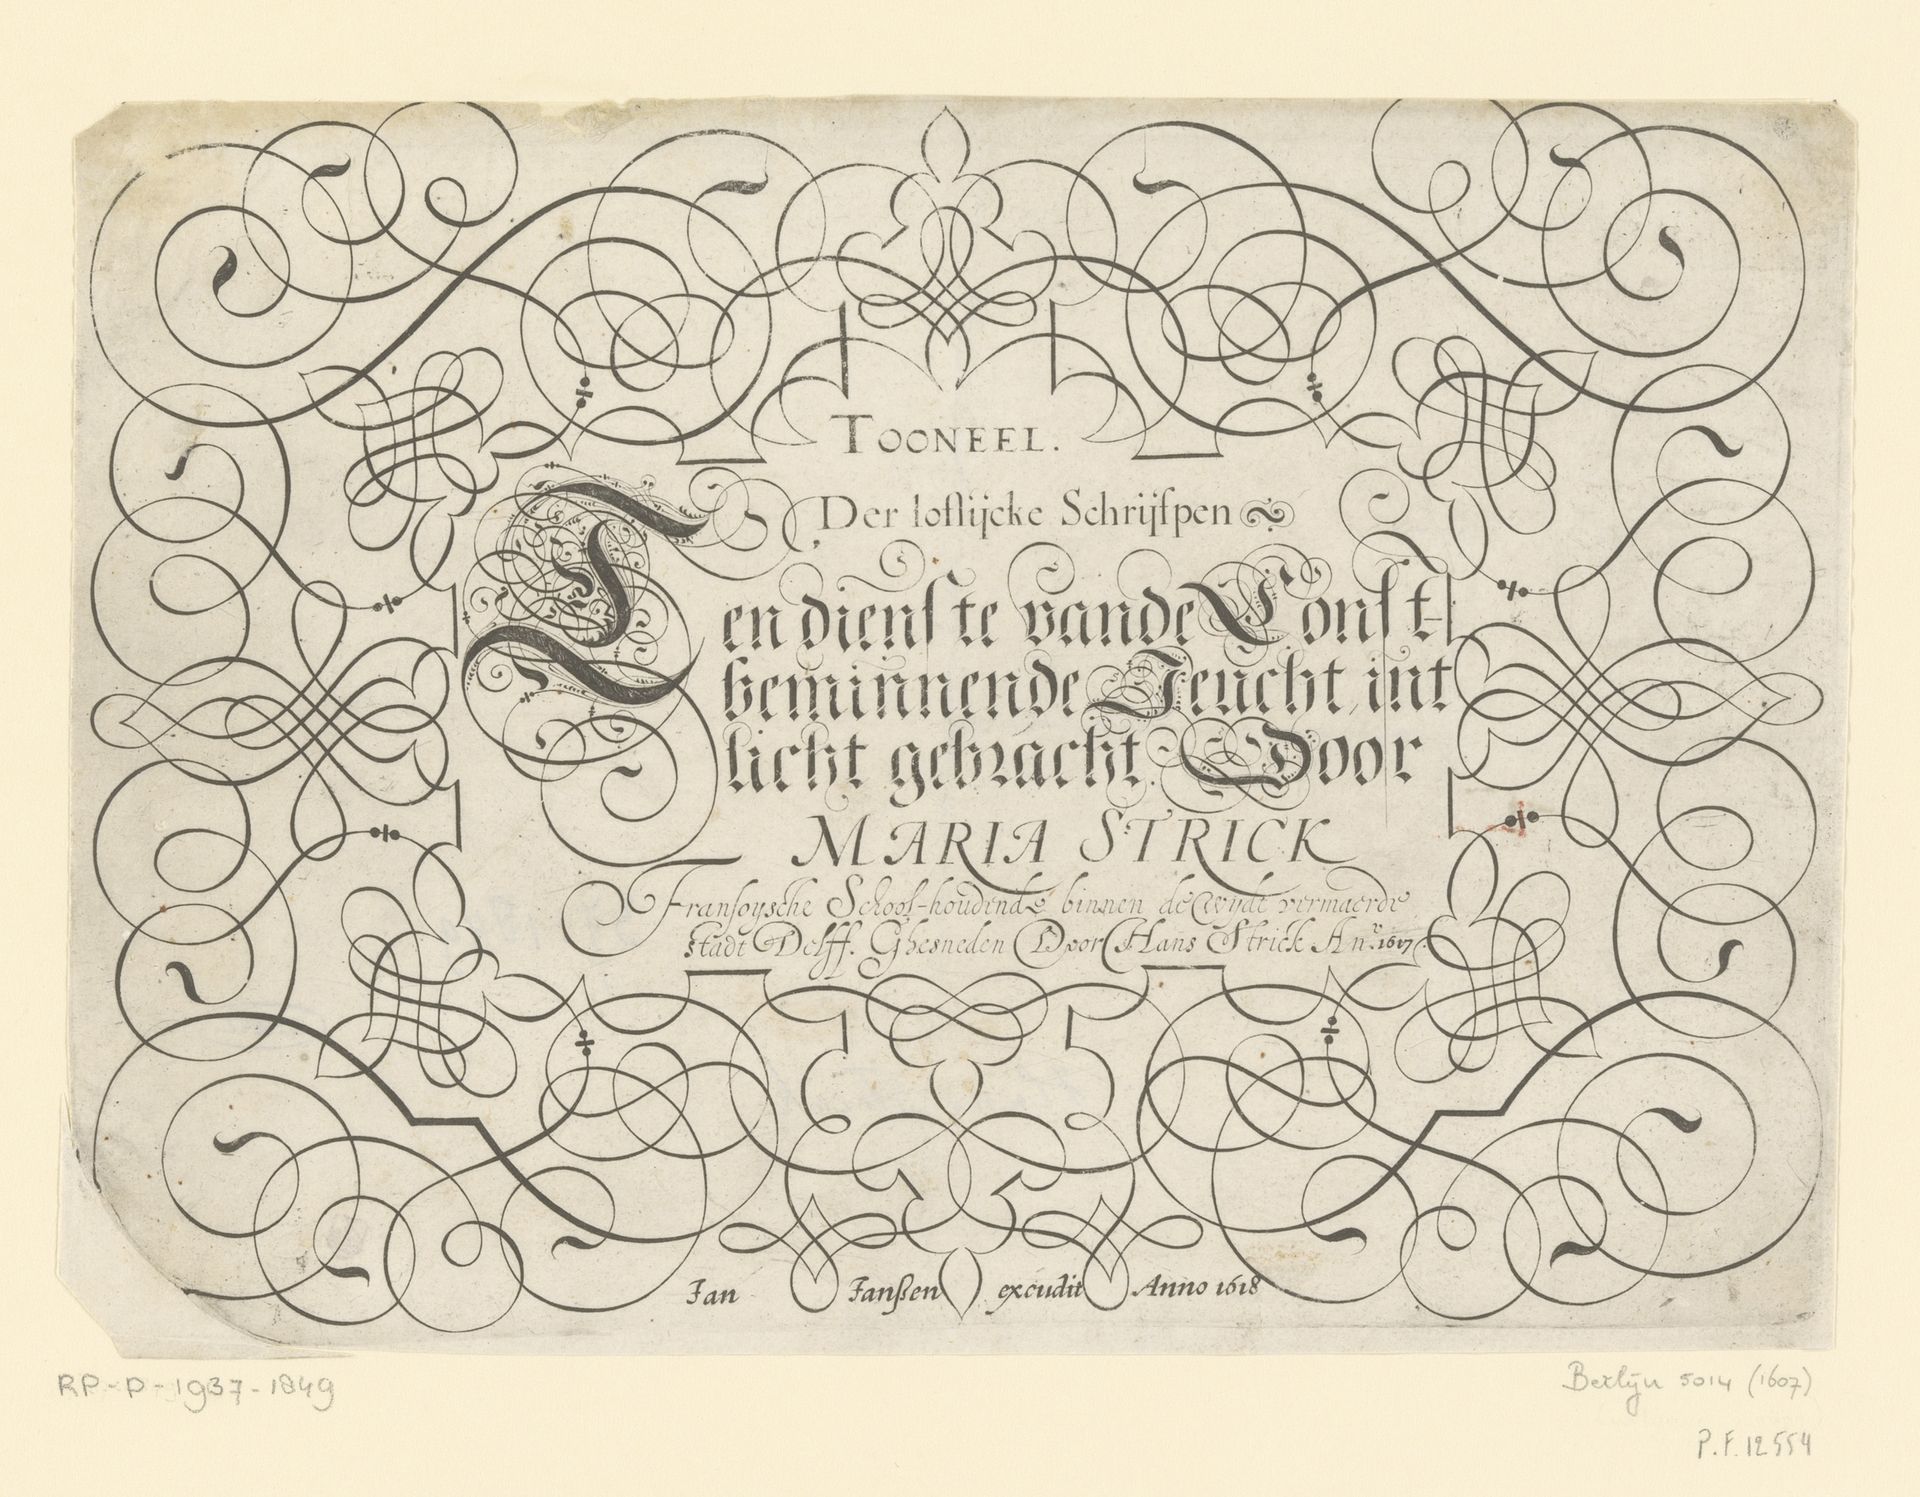 TOONEEL.
Der loflijcke Schrijfpen
Ten dienste vande Const
beminnende Jeucht, int
licht gebracht. Door
MARIA STRICK
Fransoysche School-houdende binnen de wijdt vermaerde
stadt Delff. Ghesneden Door Hans Strick An.º 1607
Jan Janßen excudit Anno 1618
RP-P-1937-1849
Berlijn 5014 (1607)
P.F. 12554